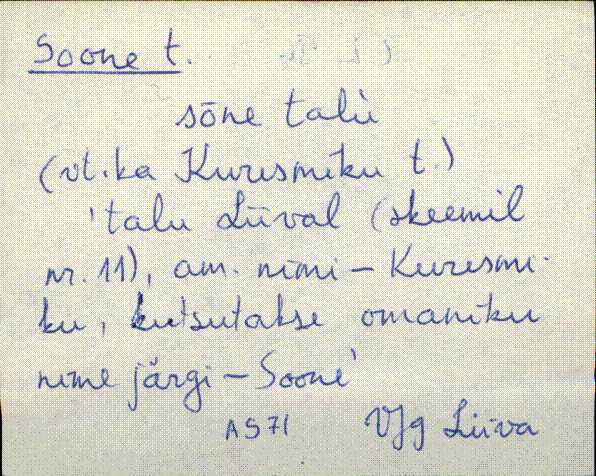 Soone t.
sōne talù
(vt. ka Kuresmiku t.)
'talu Liival (skeemil
nr. 11), am. nimi – Kuresmi-
ku, kutsutakse omaniku
nime järgi – Soone'
AS 71 VJg Liiva